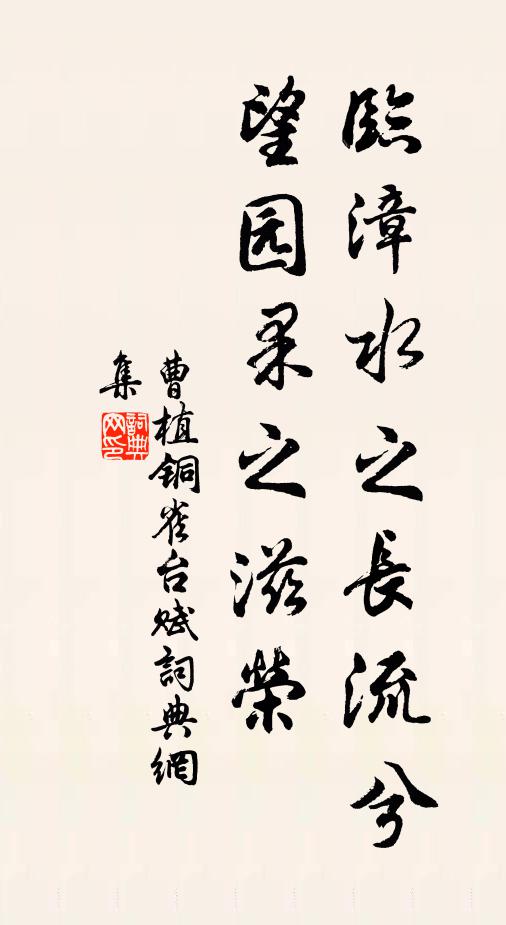 臨漳水之長流兮
望园果之滋榮
曹植铜雀台赋詞典網
集
詞典网印